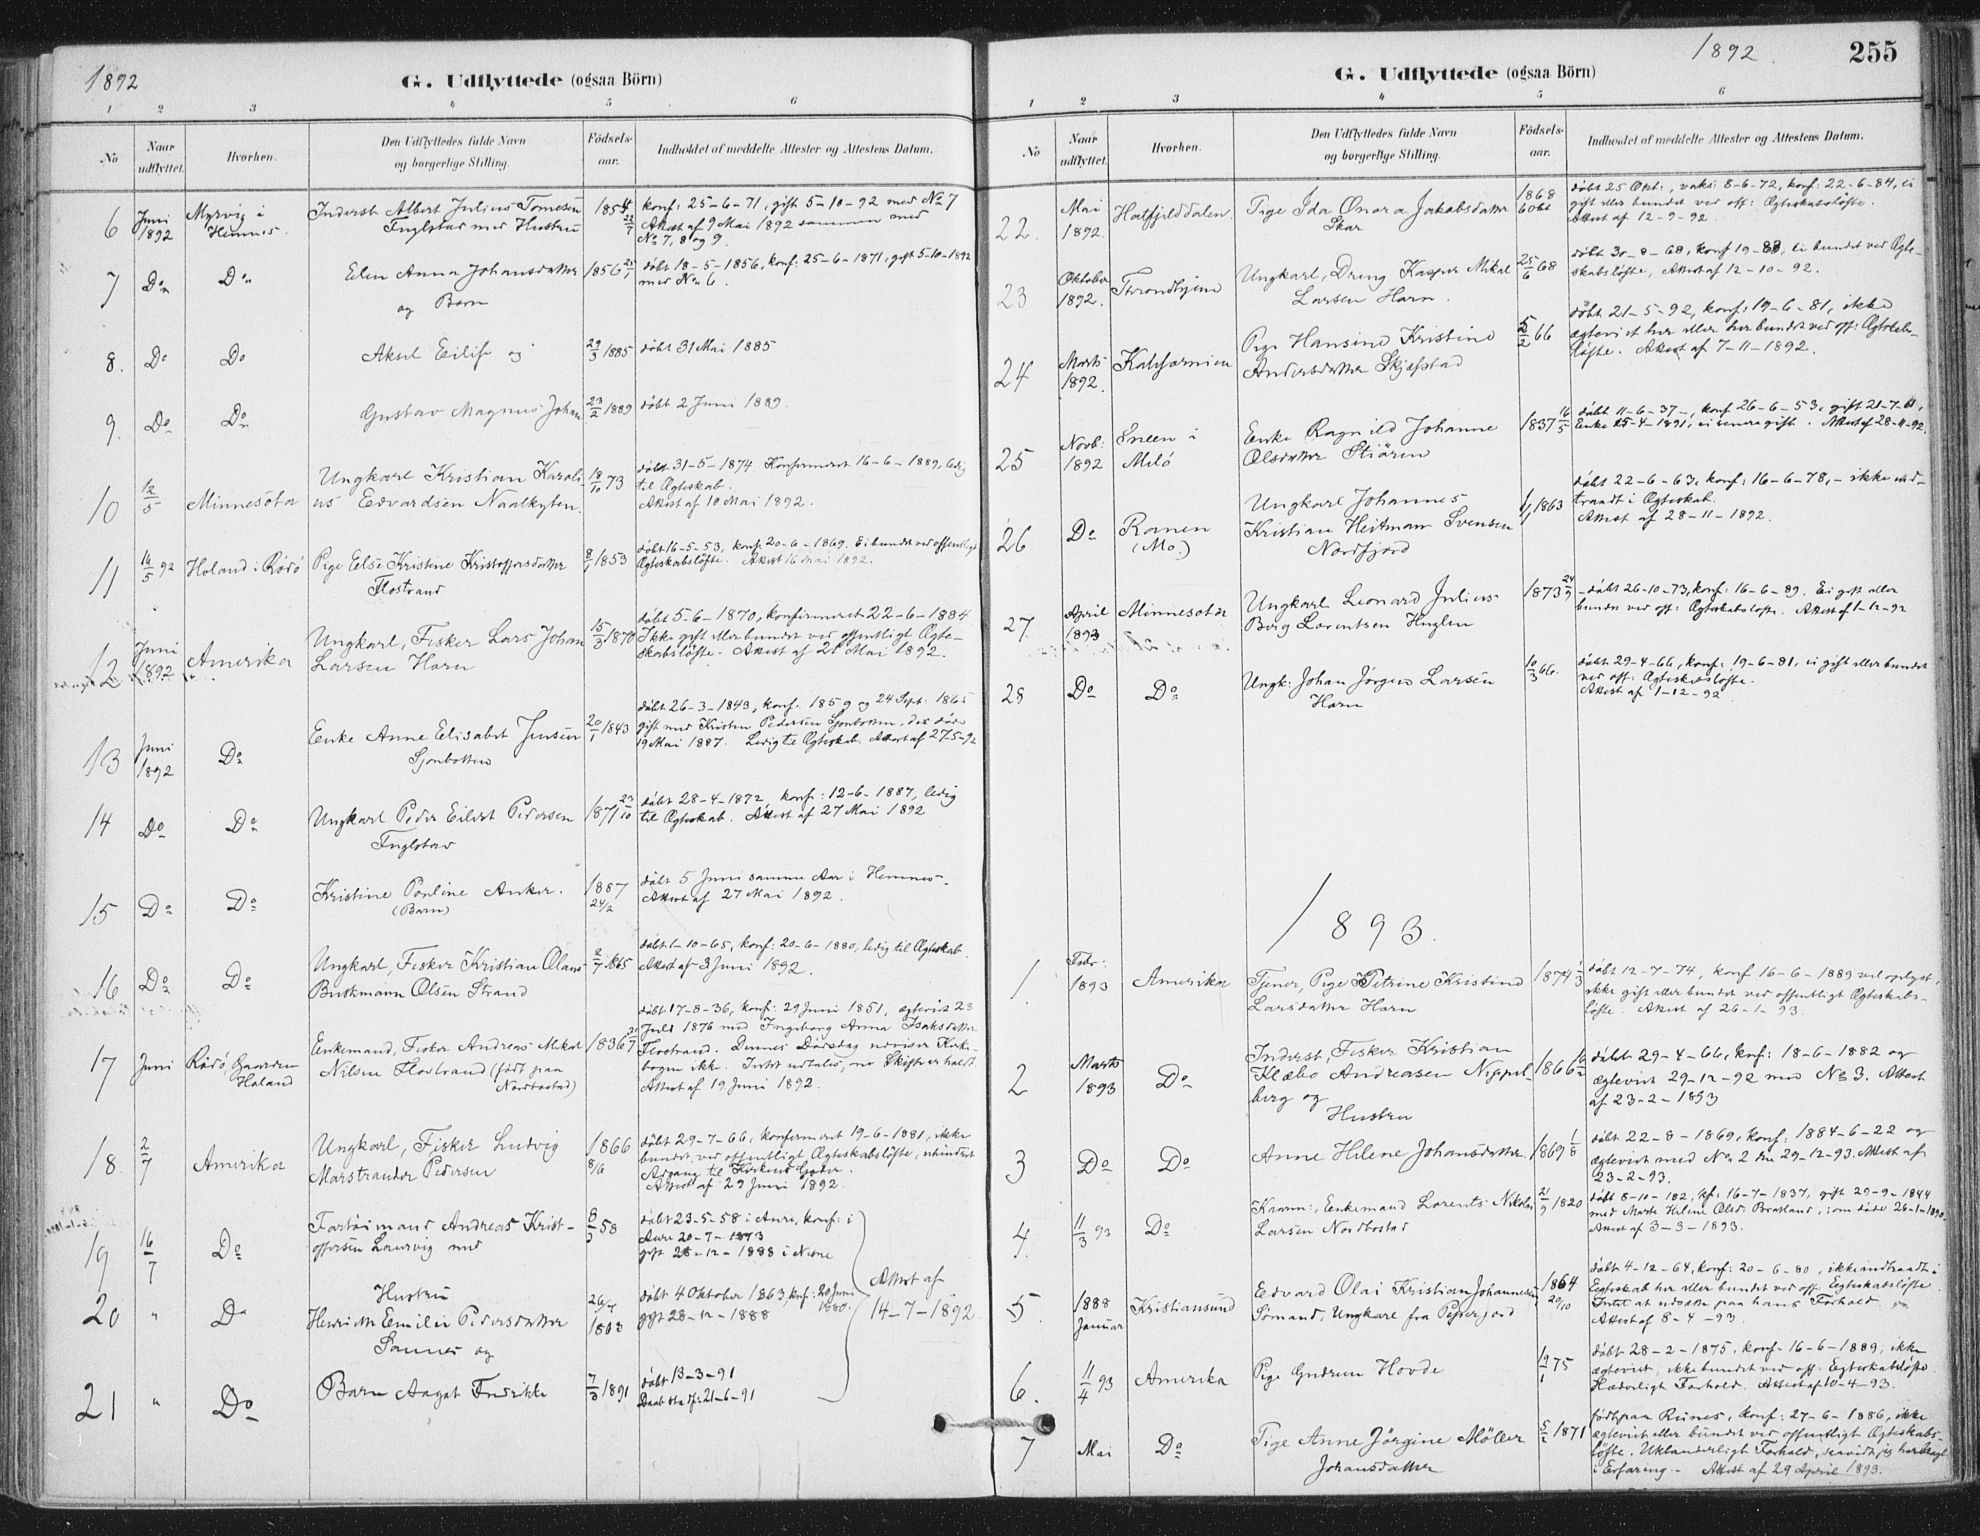 1892
G. Udflyttede (ogsaa Börn)
1 2 3 4 5 6
No
Naar udflyttet.
Hvorhen.
Den Udflyttedes fulde Navn og borgerlige Stilling.
Födsels-aar.
Indholdet af meddelte Attester og Attestens Datum.
6 Juni 1892 Myrvig i Hemnes. Inderst Albert Julius Tomesen
med Hustru
konf: 25-6-71, gift 5-10-92 med No 7
Attest af 9 Mai 1892 sammen med
No 7, 8 og 9.
7 Do Do Elen Anna Johansdatter
og Børn
1856 døbt 18-5-1856, konf: 25-6-1871, gift 5-10-1892
med No 6.
8. Do Do Aksel Eilif og 29/3 1885 døbt 31 Mai 1885
9. Do Do Gustav Magnus Johan 23/2 1889 døbt 2 Juni 1889.
10 12/5 Minnesota Ungkarl Kristian Karoli-
us Edvardsen Naalkyten.
18/10 73 døbt 31-5-1874 Konfirmeret 16-6-1889, ledig
til Ægteskab.
Attest af 10 Mai 1892.
11 14/5 92 Høland i Rödö Pige Else Kristine Kristoffersdatter
Flostrand
8/1 1853 døbt 16-5-53, konf: 20-6-1869. Ei bundet ved offentligt
Ægteskabsløfte. Attest 16 Mai 1892.
12 Juni 1892 Amerika Ungkarl, Fisker Lars Johan
Larsen Harn
15/3 1870 døbt 5-6-1870, konfirmeret 22-6-1884
Ikke gift eller bundet ved offentligt Ægte-
skabsløfte. Attest af 21 Mai 1892.
13 Juni 1892 Do Enke Anne Elisabet Jensen
Sjonbotten
20/1 1843 døbt 26-3-1843, konf. 1859 og 24 Sept: 1865
gift med Kristen Pedersen Sjonbotten, der døde
19 Mai 1887. Ledig til Ægteskab. Attest af 27-5-92
14 Do Do Ungkarl Peder Eilert Pedersen
1871 23/10 døbt 28-4-1872, konf: 12-6-1887, ledig
til Ægteskab. Attest af 27 Mai 1892
15 Do Do Kristine Pauline Anker.
(Barn)
1887 24/2 døbt 5 Juni samme Aar i Hemnes.
Attest af 27 Mai 1892.
16 Do Do Ungkarl, Fisker Kristian Olaus
Buskmann Olsen Strand
2/7 1865 døbt 1-10-65, konf: 20-6-1880, ledig til Ægteskab
Attest af 3 Juni 1892.
17 Juni Rödö, Gaarden Höland Enkemand, Fisker Andreas Mikal
Nilsen Flostrand (født paa
Nordbostad)
1836 døbt 17-8-36, konf: 29 Juni 1851, ægteviet 23
Juli 1876 med Ingeborg Anna Isaksdatter
Flostrand. Dennes Dødsdag udviser Kirke-
bogen ikke. Intet udtales, om Skifte er holdt.
Attest af 19 Juni 1892.
18. 2/7 Amerika Ungkarl, Fisker Ludvig
Marstrander Pedersen
1866 8/6 døbt 29-7-66, konfirmeret 19-6-1881, ikke
bundet ved offentligt Ægteskabsløfte, uhindret
Adgang til Kirkens Goder.
Attest af 29 Juni 1892.
19 16/7 Do Andreas Krist-
offersen Laurvig med
58 døbt 23-5-58 i Aure, konf: i
Aure 20-7-1873
gift 28-12-1888 i Nesne
Hustru
20 " Do Emilie Pedersdatter
Sannes og
1863 døbt 4 Oktober 1863, konf: 20 Juni 1880.
gift 28-12-1888
Attest af
14-7-1892.
21 " Do Barn Aagot Fredrikke 7/3 1891 døbt 13-3-91
21-6-91
1892. 255
G. Udflyttede (ogsaa Börn)
1 2 3 4 5 6
No
Naar udflyttet.
Hvorhen.
Den Udflyttedes fulde Navn og borgerlige Stilling.
Födsels-aar.
Indholdet af meddelte Attester og Attestens Datum.
22. Mai 1892. Hatfjelddalen. Pige Ida Jakobsdatter
1868 døbt 25 Okt:, vaks: 8-6-72, konf: 22-6-84, ei
gift eller bundet ved off: Ægteskabsløfte.
Attest af 12-9-92
23 Oktober 1892. Trondhjem Ungkarl, Dreng Kasper Mikal
Larsen Harn.
25/6 68 døbt 30-8-68, konf 19-83, ei bundet ved Ægte-
skabsløfte, Attest af 12-10-92.
24 Marts 1892. Kalifornien Pige Hansine Kristine
Andersdatter
66 døbt 21-5-92, konf: 19-6-81, ikke
ægteviet her eller her bundet ved off: Ægteskabs-
løfte. Attest af 7-11-1892.
25 Novb: 1892 Sneen i Melö Enke Ragnild Johanne
Olsdatter
1837 16/5 døbt 11-6-37-, konf 26-6-53, gift 21-7-61,
Enke 25-4-1891, ei senere gift. Attest af 28-11-92.
26 Do Ranen (Mo.) Ungkarl Johannes
Kristian Heitman Svensen
Nordfjord
1/1 1863 døbt 22-6-63, konf: 16-6-78, - ikke ind-
traadt i Ægteskab.
Attest af 28-11-1892.
27. April 1893 Minnesota Ungkarl Leonard Julius
Berg Lorentsen Huglen
1873 døbt 26-10-73, konf: 16-6-89. Ei gift eller
bundet ved off: Ægteskabsløfte. Attest af 1-12-92
28 Do Do Ungk: Johan Jörgen Larsen
Harn
10/3 66. døbt 29-4-66, konf: 19-6-81, ei gift eller bundet
ved off: Ægteskabsløfte.
Attest af 1-12-92
1893.
1. Febr: 1893 Amerika Tjener, Pige Petrine Kristine
Larsdatter Harn
1874 1/3 døbt 12-7-74, konf 16-6-1889 vel oplyst,
ikke gift eller bundet ved offentligt Ægteskabs-
løfte. Attest af 26-1-93.
2 Marts 1893 Do Inderst, Fisker Kristian
Klæbo Andreasen Nippel-
berg og
Hustru
1866 døbt 29-4-66, konf: 18-6-1882 og
ægteviet 29-12-92 med No 3. Attest
af 23-2-1893
3 Do Do Anne Helene Johansdatter 1869 1/8 døbt 22-8-1869, konf: 1884-6-22 og
ægteviet med No 2 den 29-12-93. Attest af
23-2-93.
4. 11/3 93 Do Enkemand Lorents Nikolai
Larsen Nordbostad
21/9 1820 døbt 8-10-182, kf: 16-7-1837, gift 29-9-1844
med Marte Helene Olsd: Bratland, som døde 26-1-1890.
Attest af 3-3-1893.
5. 1888 Januar Kristiansund Edvard Olai Kristian Johannesen
Sømand, Ungkarl fra
1864 29/10 døbt 4-12-64, konf: 20-6-80, ikke indtraadt i
Egteskab her eller bundet ved off. Egteskabsløfte.
Intet at udsætte paa hans Forhold.
Attest af 8-4-93.
6. 11/4 93 Amerika Pige Gudrun Hovde 19/1 75 døbt 28-2-1875, konf. 16-6-1889, ikke
ægteviet, ikke bundet ved off: Egteskabsløfte
Hæderligt Forhold. Attest af 10-4-93.
7 Mai Do Pige Anne Jörgine Möller
Johansdatter
5/2 1871 født paa Runes, konf: 27-6-1886, ikke
ægteviet eller bundet ved offentligt Ægteskabs-
løfte. Uklanderligt Forhold, saavidt jeg har bragt
i Erfaring - Attest af 29 April 1893.